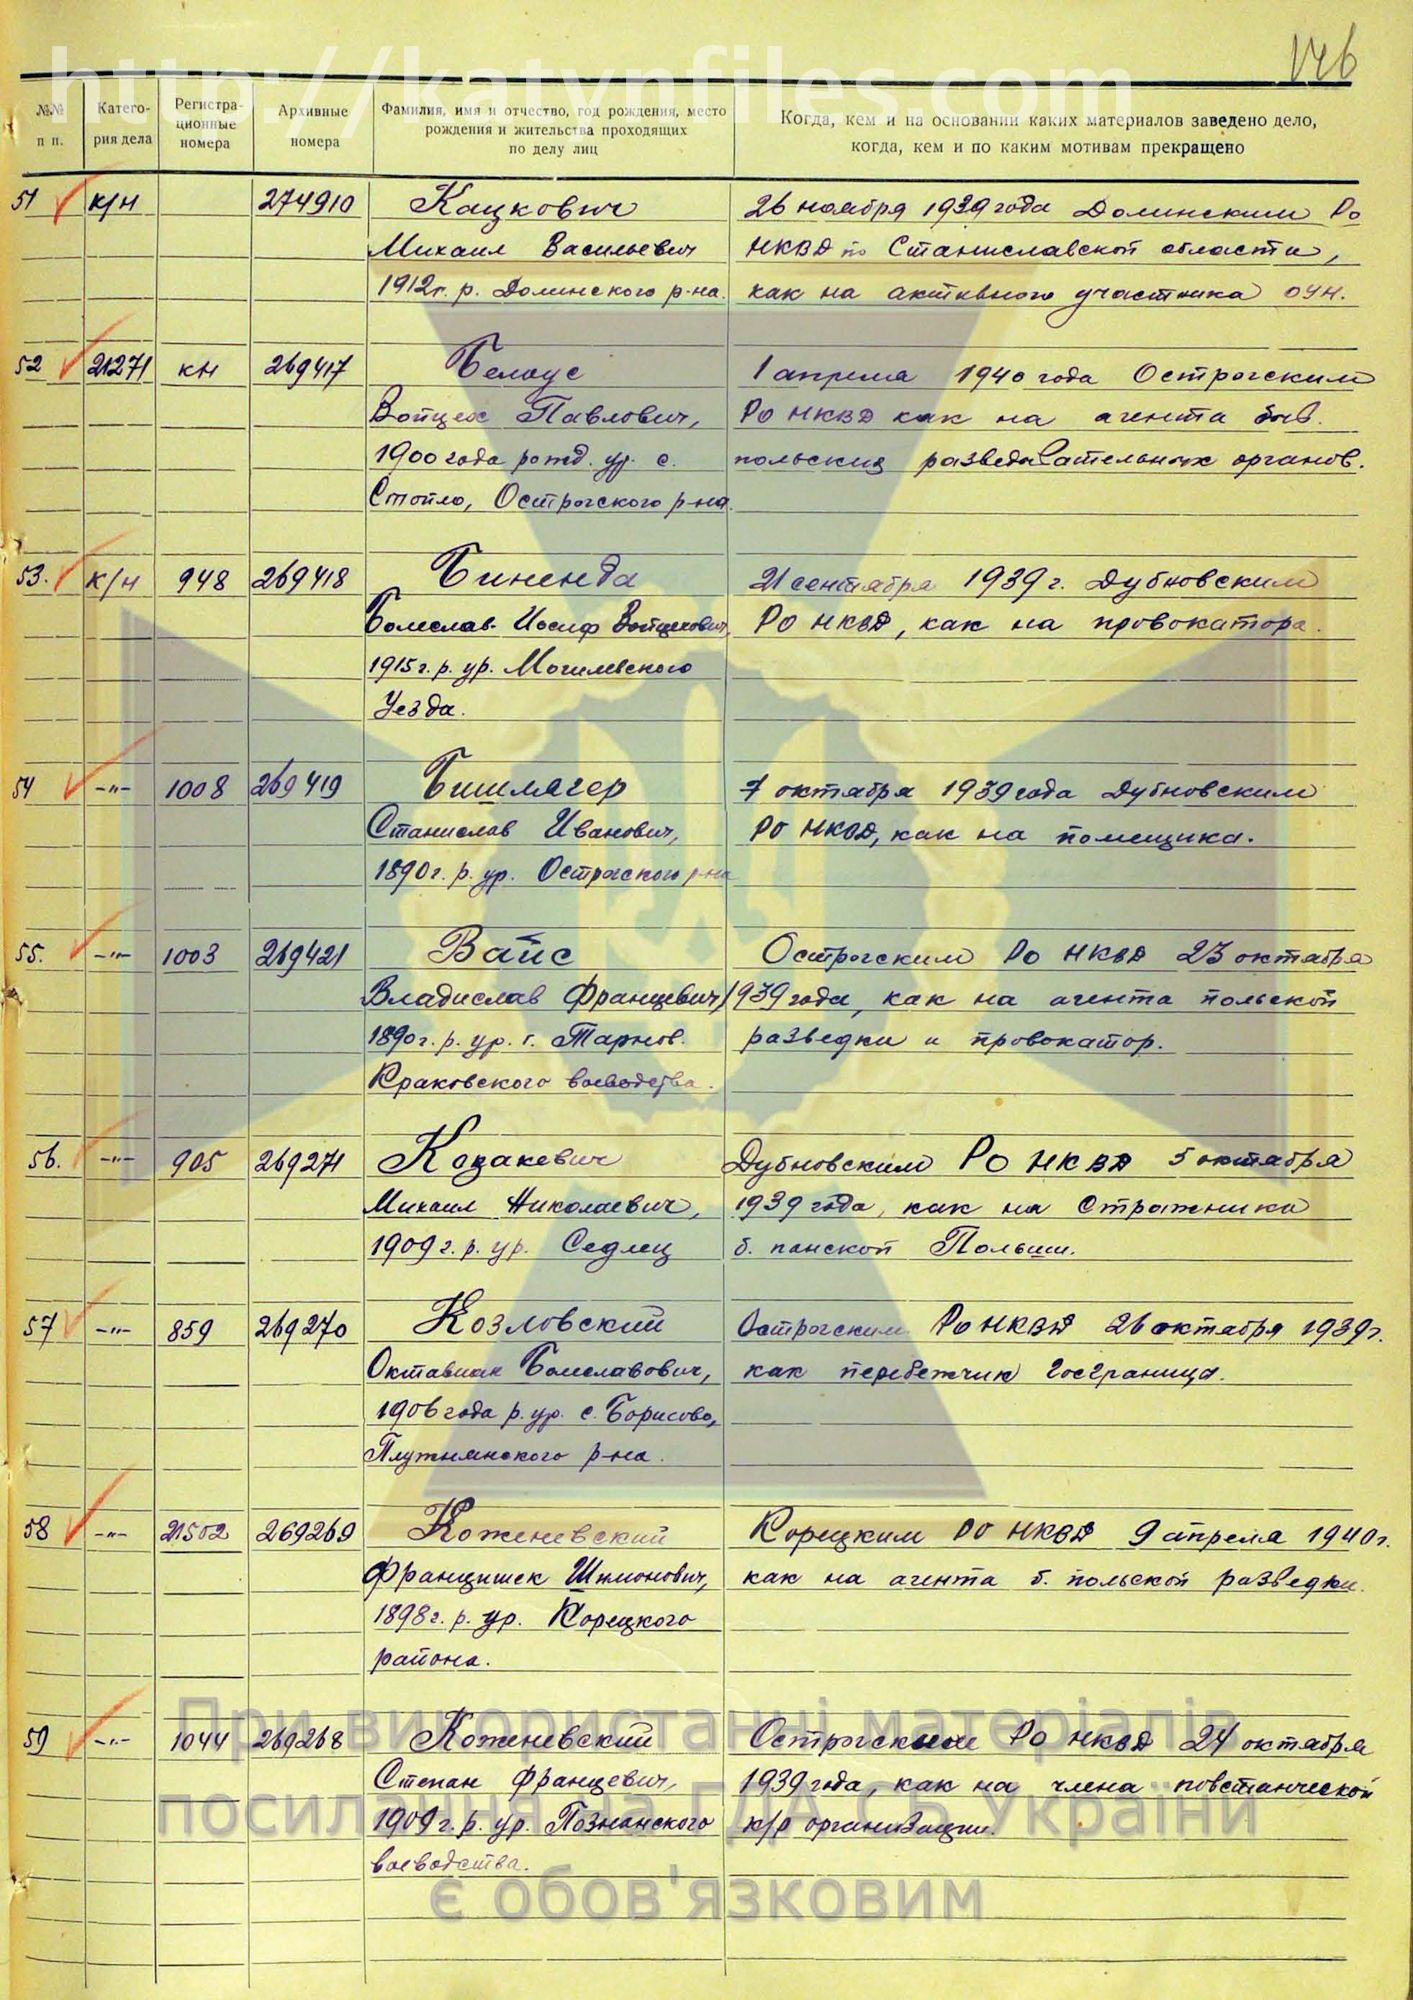 http://katynfiles.com
146
№№
п п.
Катего-
рия дела
Регистра-
ционные
номера
Архивные
номера
Фамилия, имя и отчество, год рождения, место
рождения и жительства проходящих
по делу лиц
Когда, кем и на основании каких материалов заведено дело,
когда, кем и по каким мотивам прекращено
51 к/н 274910 Кацкович
Михаил Васильевич
1912г. р. Долинского р-на.
26 ноября 1939 года Долинским Ро
НКВД по Станиславской области,
как на активного участника ОУН.
52 21271 кн 269417 Белоус
Войцех Павлович,
1900 года рожд. ур. с.
Стопло, Острогского р-на.
1 апреля 1940 года Острогским
РО НКВД как на агента быв.
польских разведывательных органов.
53. к/н 948 269418 Биненда
Болеслав-Иосиф Войцехович,
1915 г. р. ур. Могилевского
Уезда.
21 сентября 1939 г. Дубновским
РО НКВД, как на провокатора.
54 -"- 1008 269419 Бишлягер
Станислав Иванович,
1890 г. р. ур. Острогского р-на
7 октября 1939 года Дубновским
РО НКВД, как на помещика.
55. -"- 1003 269421 Вайс
Владислав Францевич
1890 г. р. ур. г. Тарнов.
Краковского воеводства.
Острогским Ро НКВД 23 октября
1939 года, как на агента польской
разведки и провокатор.
56. -"- 905 269271 Козакевич
Михаил Николаевич,
1909 г. р. ур. Седлец
Дубновским РО НКВД 5 октября
1939 года, как на Стражника
б. панской Польши.
57 -"- 859 269270 Козловский
Октавиан Болеславович,
1906 года р. ур. с. Борисово,
Плужнянского р-на.
Острогским Ро НКВД 26 октября 1939г.
как перебежчик Госграница.
58 -"- 21502 269269 Коженевский
Францишек Шимонович,
1898 г. р. ур. Корецкого
района.
Корецким РО НКВД 9 апреля 1940г.
как на агента б. польской разведки.
59 -"- 1044 269268 Коженевский
Степан Францевич,
1909 г. р. ур. Познанского
воеводства.
Острогским Ро НКВД 24 октября
1939 года, как на члена повстанческой
к/р организации.
При використанні матеріалів
посилання на ГДА СБ України
є обов'язковим